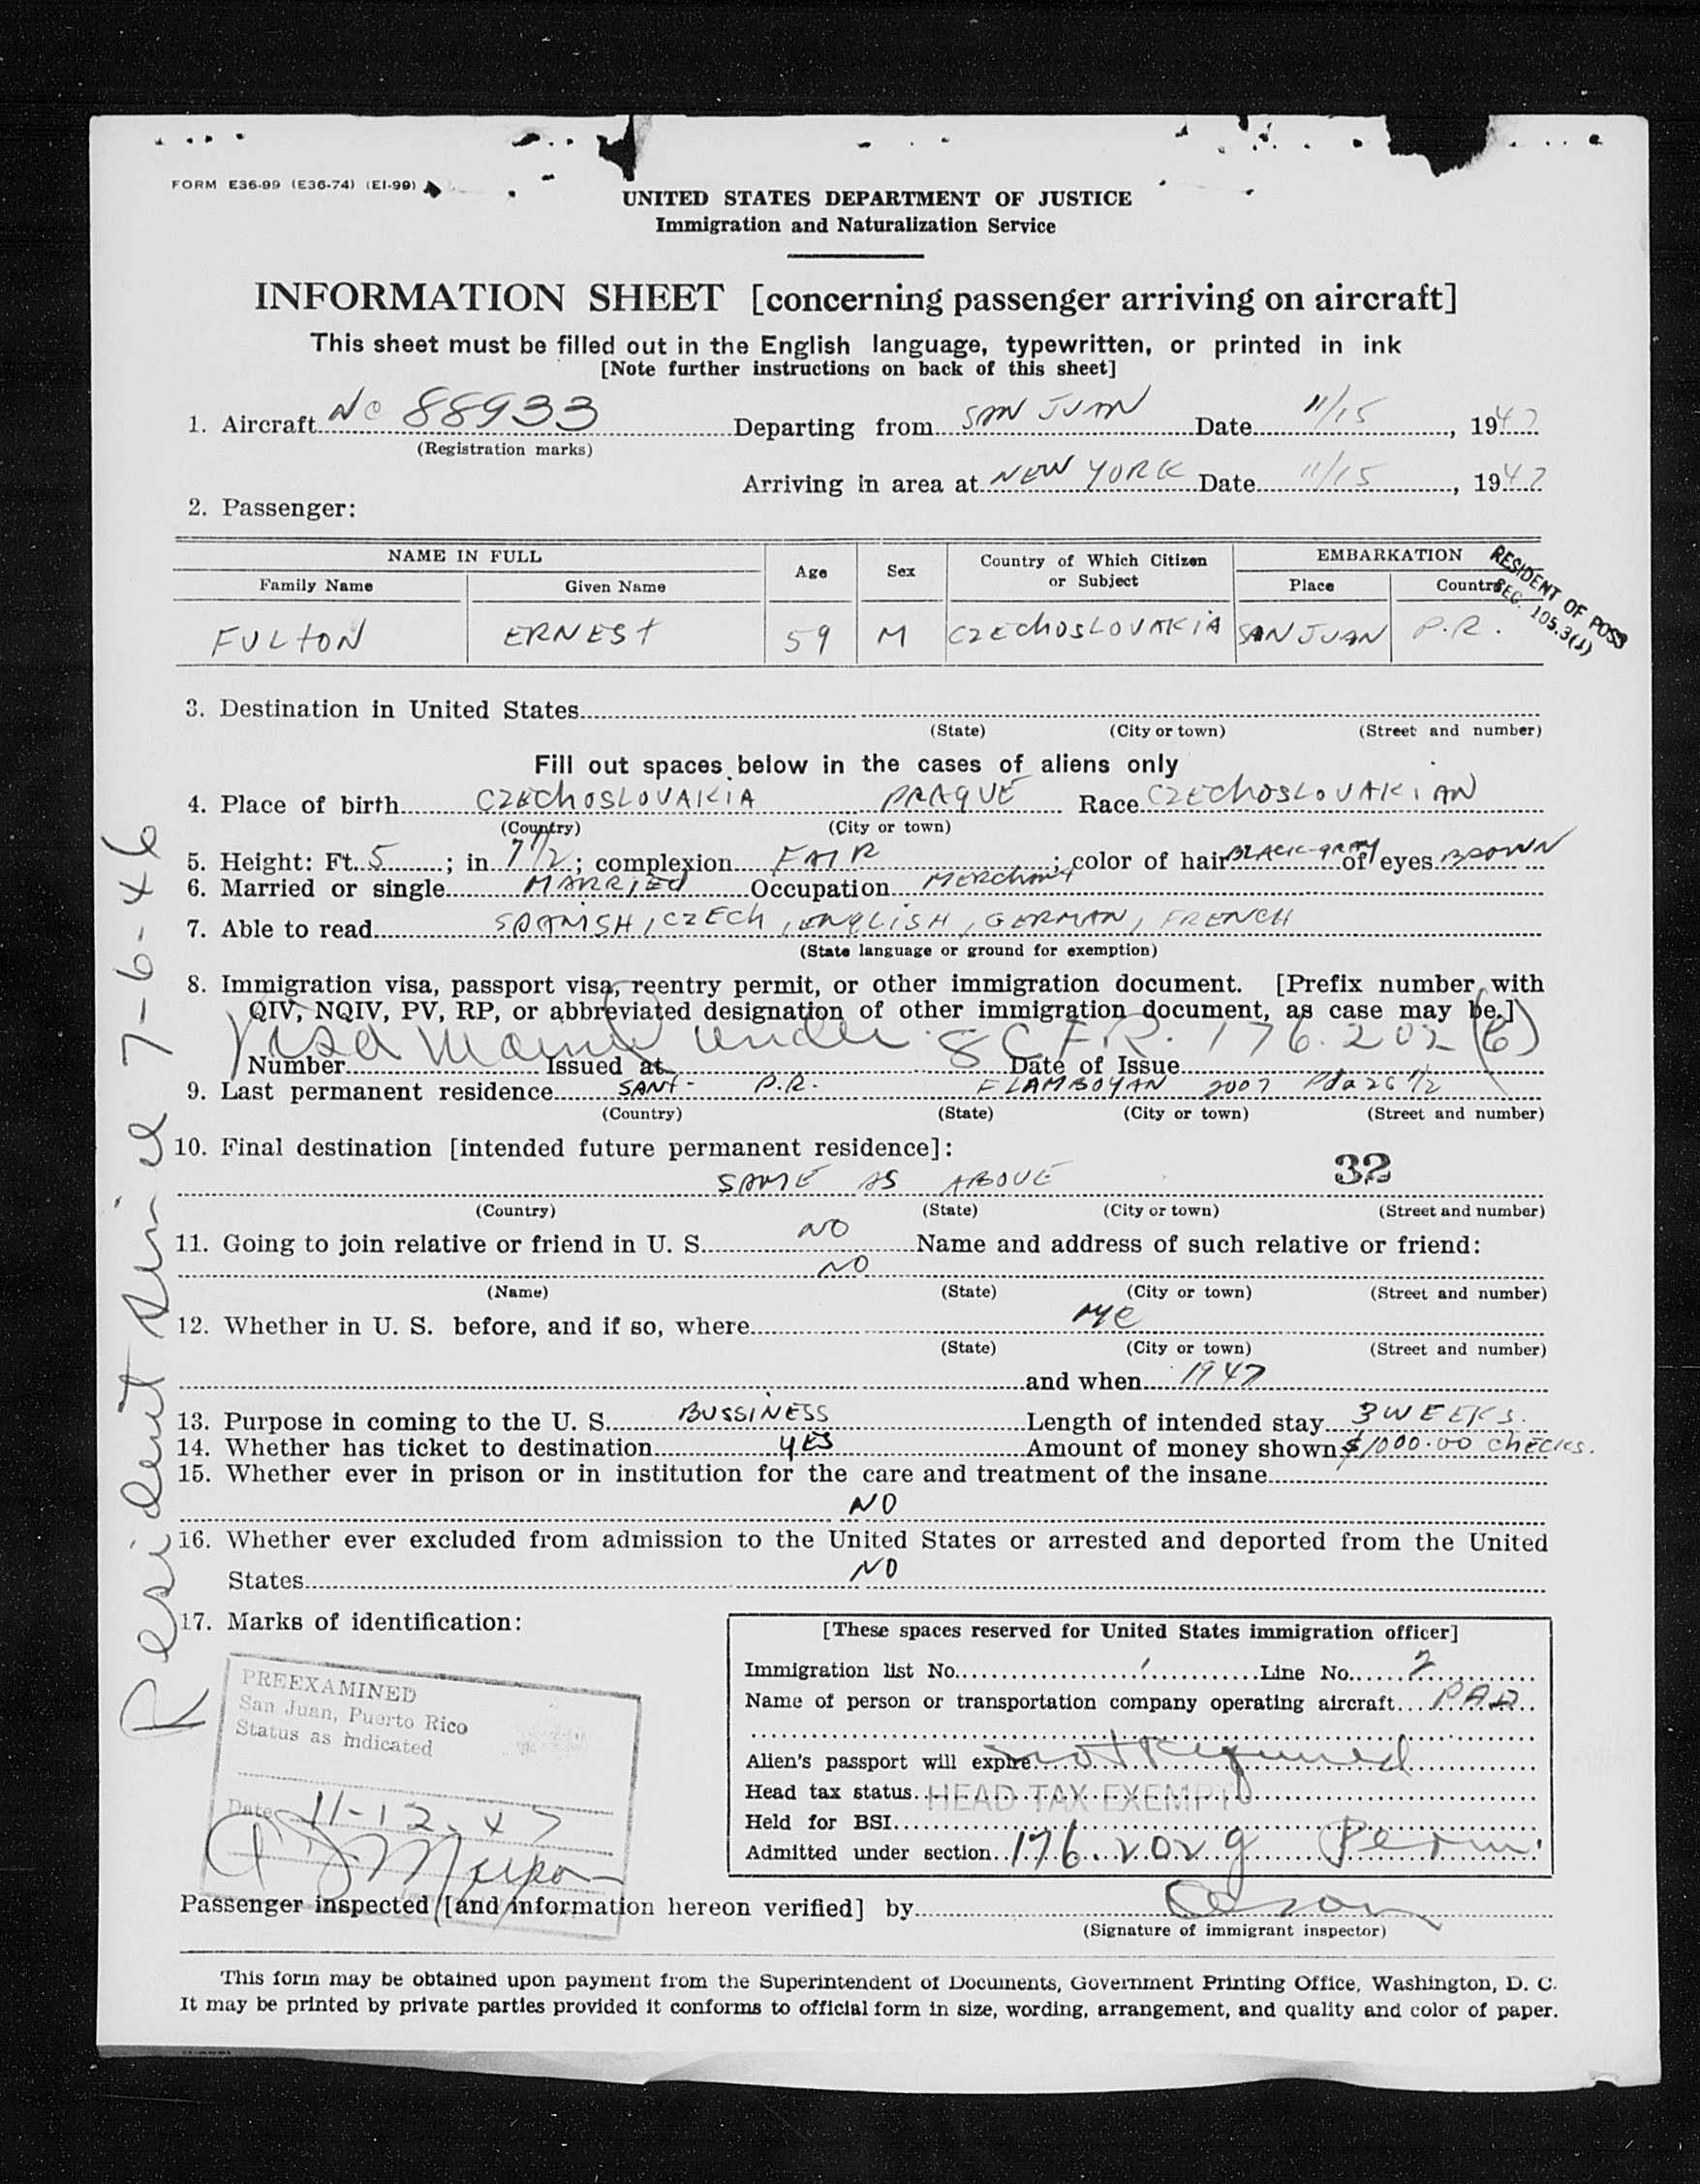 FORM E36-99 (E36-74) (EI-99)
UNITED STATES DEPARTMENT OF JUSTICE
Immigration and Naturalization Service
INFORMATION SHEET [concerning passenger arriving on aircraft]
This sheet must be filled out in the English language, typewritten, or printed in ink
[Note further instructions on back of this sheet]
1. Aircraft No 88933 Departing from SAN JUAN Date 11/15, 1947
(Registration marks)
Arriving in area at NEW YORK Date 11/15, 1947
2. Passenger:
NAME IN FULL Age Sex Country of Which Citizen or Subject EMBARKATION
Family Name Given Name Place Country
RESIDENT OF POSS
SEC. 105.3(J)
FULTON ERNEST 59 M CZECHOSLOVAKIA SAN JUAN P.R.
3. Destination in United States
(State) (City or town) (Street and number)
Fill out spaces below in the cases of aliens only
4. Place of birth CZECHOSLOVAKIA PRAGUE Race CZECHOSLOVAKIAN
(Country) (City or town)
5. Height: Ft. 5; in 7 1/2; complexion FAIR; color of hair BLACK-GRAY of eyes BROWN
6. Married or single MARRIED Occupation MERCHANT
7. Able to read SPANISH, CZECH, ENGLISH, GERMAN, FRENCH
(State language or ground for exemption)
8. Immigration visa, passport visa, reentry permit, or other immigration document. [Prefix number with
QIV, NQIV, PV, RP, or abbreviated designation of other immigration document, as case may be.]
Visa under 8 C.F.R. 176.202(6)
Number Issued at Date of Issue
9. Last permanent residence SANT- P.R. FLAMBOYAN 2007 Pda 26 1/2
(Country) (State) (City or town) (Street and number)
10. Final destination [intended future permanent residence]:
32
SAME AS ABOVE
(Country) (State) (City or town) (Street and number)
11. Going to join relative or friend in U. S. NO Name and address of such relative or friend:
NO
(Name) (State) (City or town) (Street and number)
12. Whether in U. S. before, and if so, where NYC
(State) (City or town) (Street and number)
and when 1947
13. Purpose in coming to the U. S. BUSSINESS Length of intended stay 3 WEEKS.
14. Whether has ticket to destination YES Amount of money shown $1000.00 CHECKS.
15. Whether ever in prison or in institution for the care and treatment of the insane
NO
16. Whether ever excluded from admission to the United States or arrested and deported from the United
States NO
17. Marks of identification:
Resident since 7-6-46
PREEXAMINED
San Juan, Puerto Rico
Status as indicated
Date 11-12-47
[These spaces reserved for United States immigration officer]
Immigration list No. Line No. 2
Name of person or transportation company operating aircraft PAA
Alien's passport will expire not required
Head tax status HEAD TAX EXEMPT
Held for BSI
Admitted under section 176.202g Perm.
Passenger inspected [and information hereon verified] by
(Signature of immigrant inspector)
This form may be obtained upon payment from the Superintendent of Documents, Government Printing Office, Washington, D. C.
It may be printed by private parties provided it conforms to official form in size, wording, arrangement, and quality and color of paper.